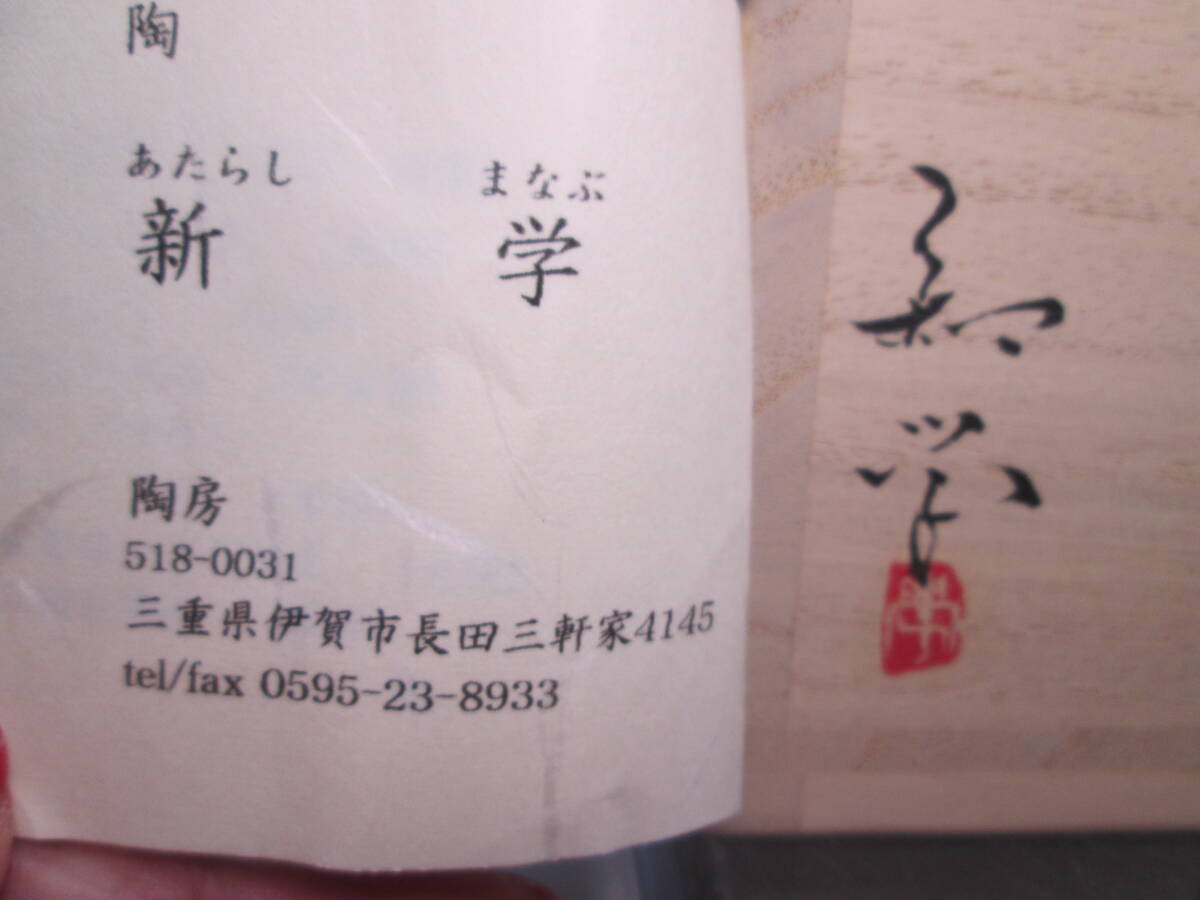 陶
あたらし まなぶ
新 学
陶房
518-0031
三重県伊賀市長田三軒家4145
tel/fax 0595-23-8933
新
学